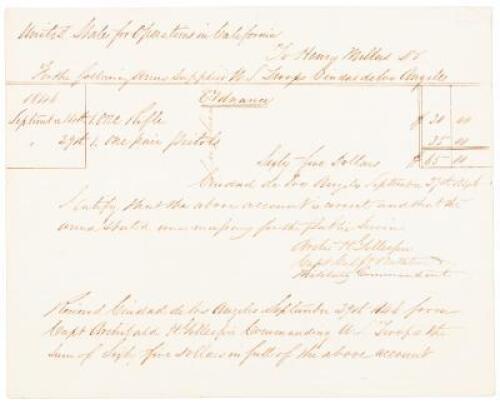 United States for Operations in California
To Henry Mellus Dr
For the following Arms Supplied U. S. Troops Ciudad de los Angeles
1846 Ordnance
September 14th 1. One Rifle $ 30 00
" 29th 1. One pair Pistols 35 00
Sixty-five Dollars $ 65 00
Ciudad de los Angeles September 29th 1846
I certify that the above account is correct and that the
arms were necessary for the public service
Archd H Gillespie
Capt
Military Commandant
Received Ciudad de los Angeles September 29th 1846 from
Capt Archibald H Gillespie Commanding U. S. Troops the
sum of Sixty five dollars in full of the above account